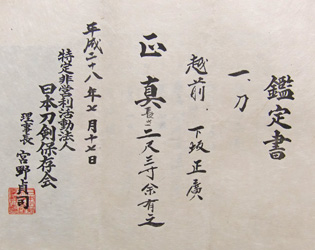 鑑定書
一、刀
越前 下坂正廣
正真 長さ二尺三寸余有之
平成二十八年七月十七日
特定非営利活動法人
日本刀剣保存会
理事長 宮野貞司